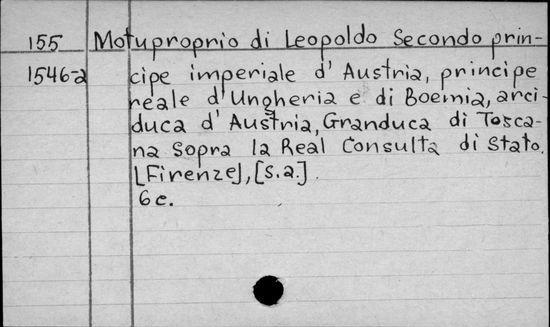 155 Motuproprio di Leopoldo Secondo prin-
1546-a cipe imperiale d' Austria, principe
reale d'Ungheria e di Boemia, arci-
duca d' Austria, Granduca di Tosca-
na sopra la Real Consulta di Stato.
[Firenze], [s.a.].
6c.